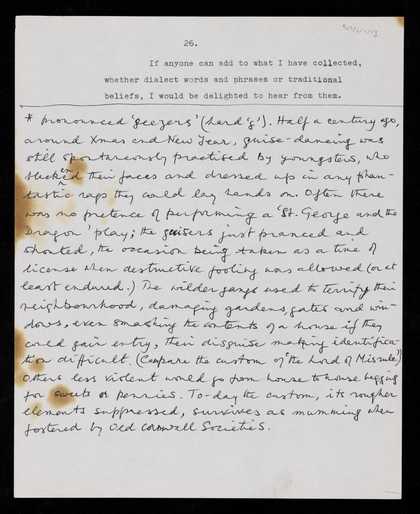 26.
If anyone can add to what I have collected,
whether dialect words and phrases or traditional
beliefs, I would be delighted to hear from them.
* pronounced 'geezers' (hard 'g'). Half a century ago,
around Xmas and New Year, guise-dancing was
still spontaneously practised by youngsters, who
blackened their faces and dressed up in any phan-
tastic rags they could lay hands on. Often there
was no pretence of performing a 'St. George and the
Dragon' play; the guisers just pranced and
shouted, the occasion being taken as a time of
licence when destructive fooling was allowed (or at
least endured.) The wilder gangs used to terrify their
neighbourhood, damaging gardens, gates and win-
dows, even smashing the contents of a house if they
could gain entry, their disguise making identifica-
tion difficult. (Compare the custom of 'the Lord of Misrule')
Others less violent would go from house to house begging
for sweets or pennies. To-day the custom, its rougher
elements suppressed, survives as mumming when
fostered by Old Cornwall Societies.